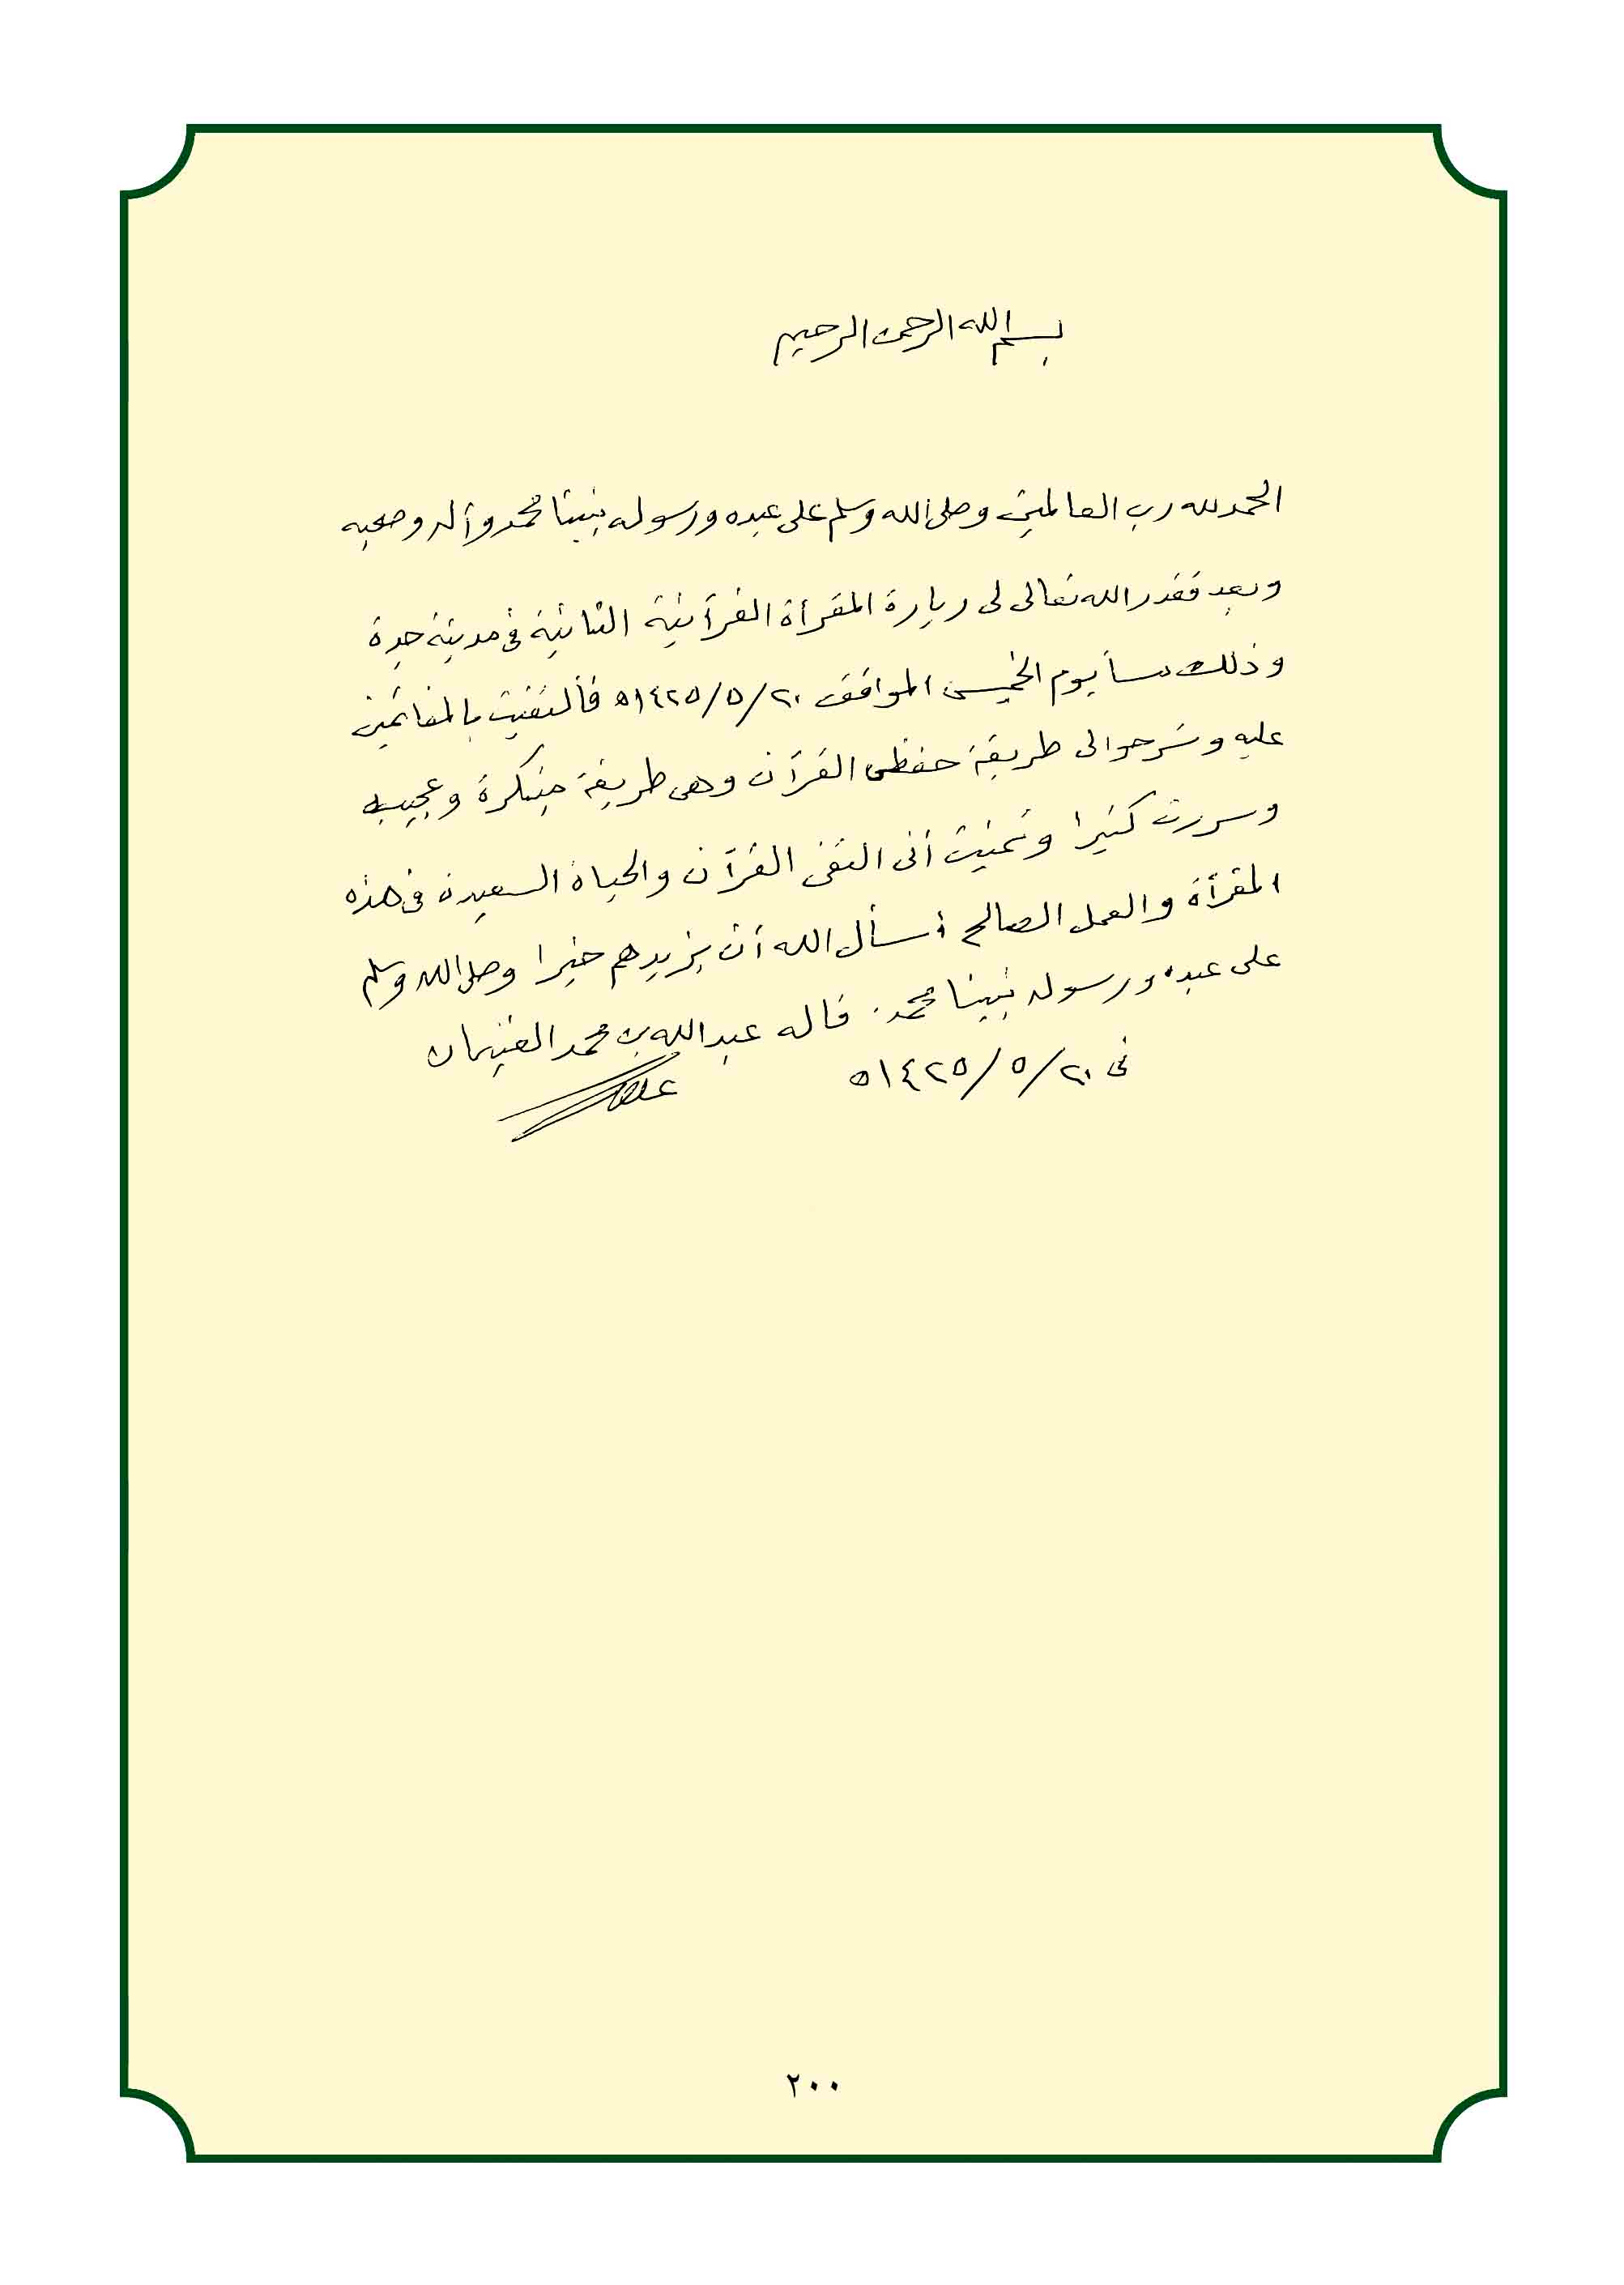 بسم الله الرحمن الرحيم
الحمد لله رب العالمين وصلى الله وسلم على عبده ورسوله نبينا محمد وآله وصحبه
وبعد فقدر الله تعالى لى زيارة المقرأة القرآنية الثانية فى مدينة جدة
وذلك مسأ يوم الخميس الموافق ٢٠/٥/١٤٢٥ه فألتقيت بالقائمين
عليه وشرحوا لى طريقة حفظ القرآن وهى طريقة مبتكرة وعجيبه
وسررت كثيرا وتمنيت أنى القرآن والحياة السعيدة فى هذه
المقرأة والعمل الصالح أسأل الله أن يزيدهم خيرا وصلى الله وسلم
على عبده ورسوله نبينا محمد. قاله عبدالله بن محمد الغنيمان
فى ٢٠/٥/١٤٢٥ه
٢٠٠